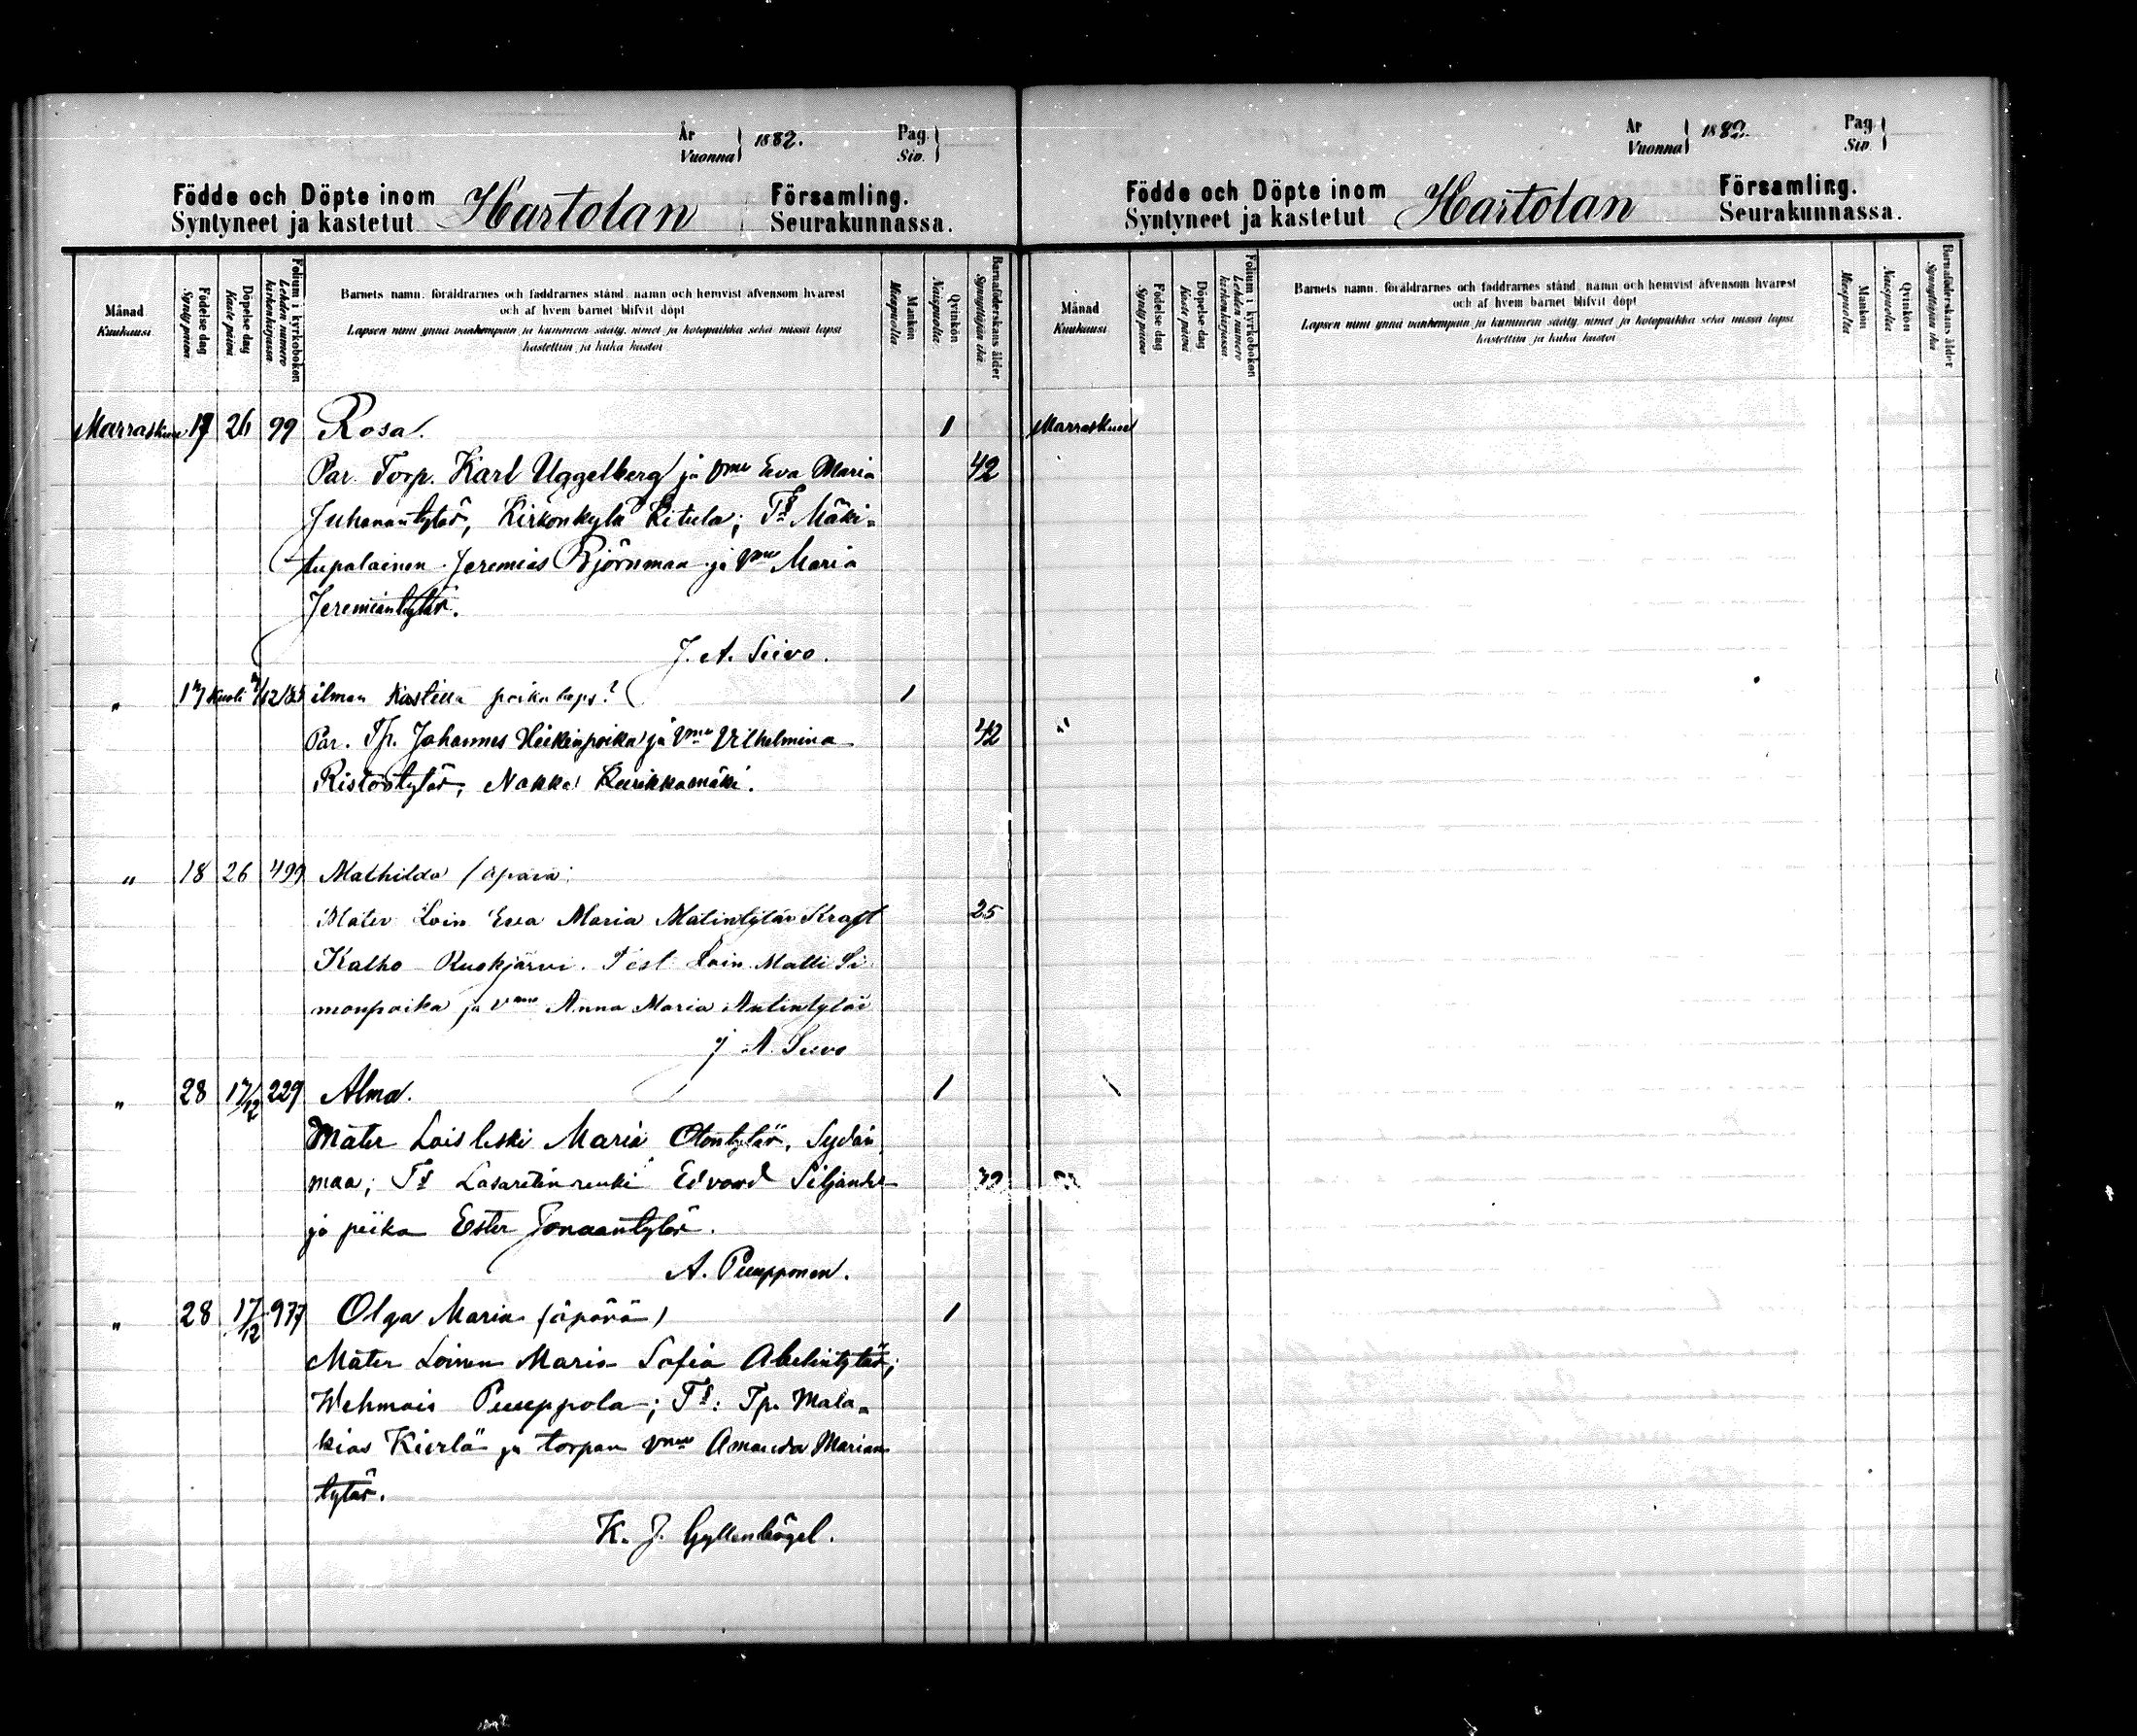 År
Vuonna 1882. Pag.
Siv.
Födde och Döpte inom
Syntyneet ja kastetut Hartolan Församling.
Seurakunnassa.
Månad
Kuukausi.
Födelse dag
Synty päivä.
Döpelse dag
Kaste päivä
Folium i kyrkoboken
Lehden numero
kirkonkirjassa
Barnets namn, föräldrarnes och faddrarnes stånd, namn och hemvist äfvensom hvarest
och af hvem barnet blifvit döpt
Lapsen nimi ynnä vanhempain ja kummein sääty, nimet ja kotopaikka sekä missä lapsi
kastettiin ja kuka kastoi
Mankön
Miespuolia
Qvinkön
Naispuolia
Barnaföderskans ålder
Synnyttäjän ikä
Marraskuu 17 26 99 Rosa. 1
Par. Torp. Karl Uggelberg ja vmo Eva Maria 42
Juhanantytär, Kirkonkylä Kitula; Ts Mäki-
tupalainen Jeremias Björnman ja Vmo Maria
Jeremiantytär.
J. A. Siivo.
" 17 Kuoli /12/82 ilman kastetta poika laps? 1
Par. Tp. Johannes Heikinpoika ja Vmo Vilhelmina 42
Ristontytär, Nokka Kurikkamäki.
" 18 26 499 Mathilda (äpärä
Mater Lois Eva Maria Matintytär Kraft 25
Kalho Ruokjärvi. Test Lois Matti Si
monpoika ja vmo Anna Maria Antintytär
J A. Siivo
" 28 17/12 229 Alma. 1
Mater Lois leski Maria Otontytär, Sydän
maa; Ts Lasaretin renki Edvard Siljander
ja piika Ester Jonaantytär.
A. Puupponen.
" 28 17/12 977 Olga Maria (äpärä) 1
Mater Loinen Maria Sofia Abelintytär;
Wehmais Puuppola; Ts: Tp. Mala-
kias Kierlä ja torpan vmo Amanda Marian
tytär.
K. J. Gyllenbögel.
År
Vuonna 1882. Pag.
Siv.
Födde och Döpte inom
Syntyneet ja kastetut Hartolan Församling.
Seurakunnassa.
Månad
Kuukausi
Födelse dag
Synty päivä
Döpelse dag
Kaste päivä
Folium i kyrkoboken
Lehden numero
kirkonkirjassa
Barnets namn, föräldrarnes och faddrarnes stånd, namn och hemvist äfvensom hvarest
och af hvem barnet blifvit döpt
Lapsen nimi ynnä vanhempain ja kummein sääty, nimet ja kotopaikka sekä missä lapsi
kastettiin ja kuka kastoi
Mankön
Miespuolia
Qvinkön
Naispuolia
Barnaföderskans ålder
Synnyttäjän ikä
Marraskuu
"